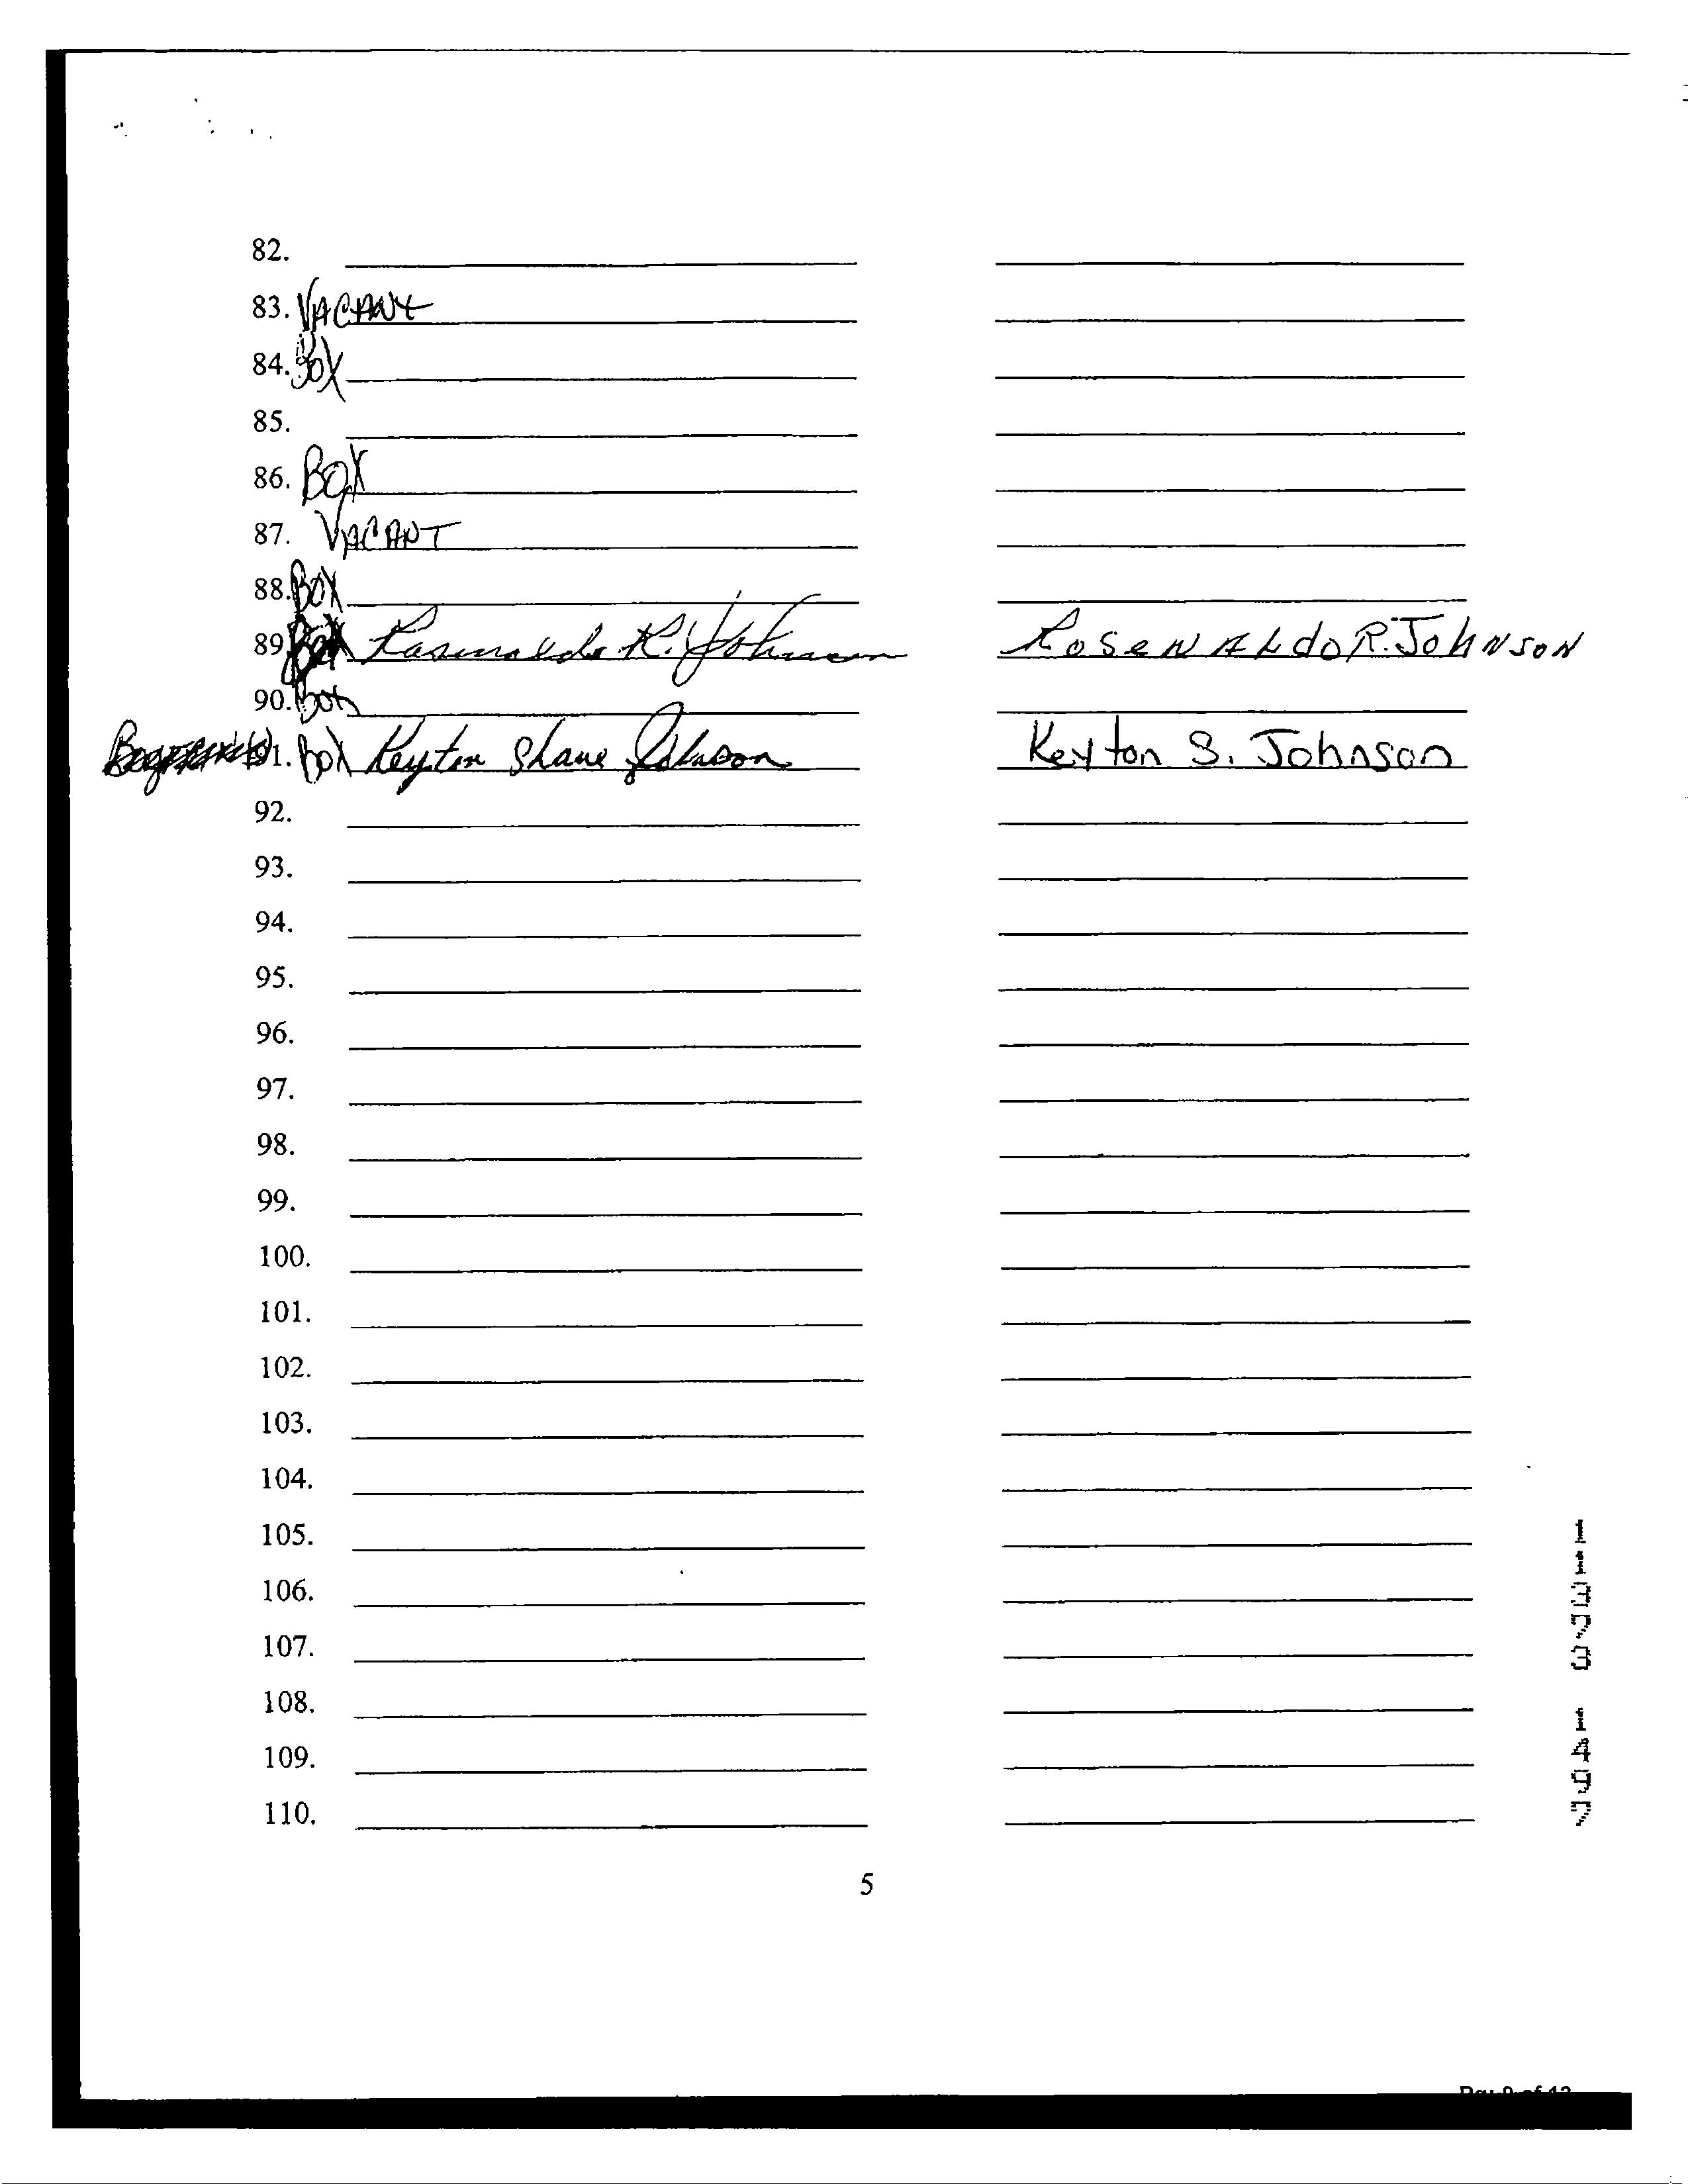 82.
83. VACANT
84. BOX
85.
86. BOX
87. VACANT
88. BOX
89. BOX Rosenaldo R. Johnson RoseNALdo R. JohNSON
90. BOX
91. BOX Keyton Shane Johnson Keyton S. Johnson
92.
93.
94.
95.
96.
97.
98.
99.
100.
101.
102.
103.
104.
105.
106.
107.
108.
109.
110.
5